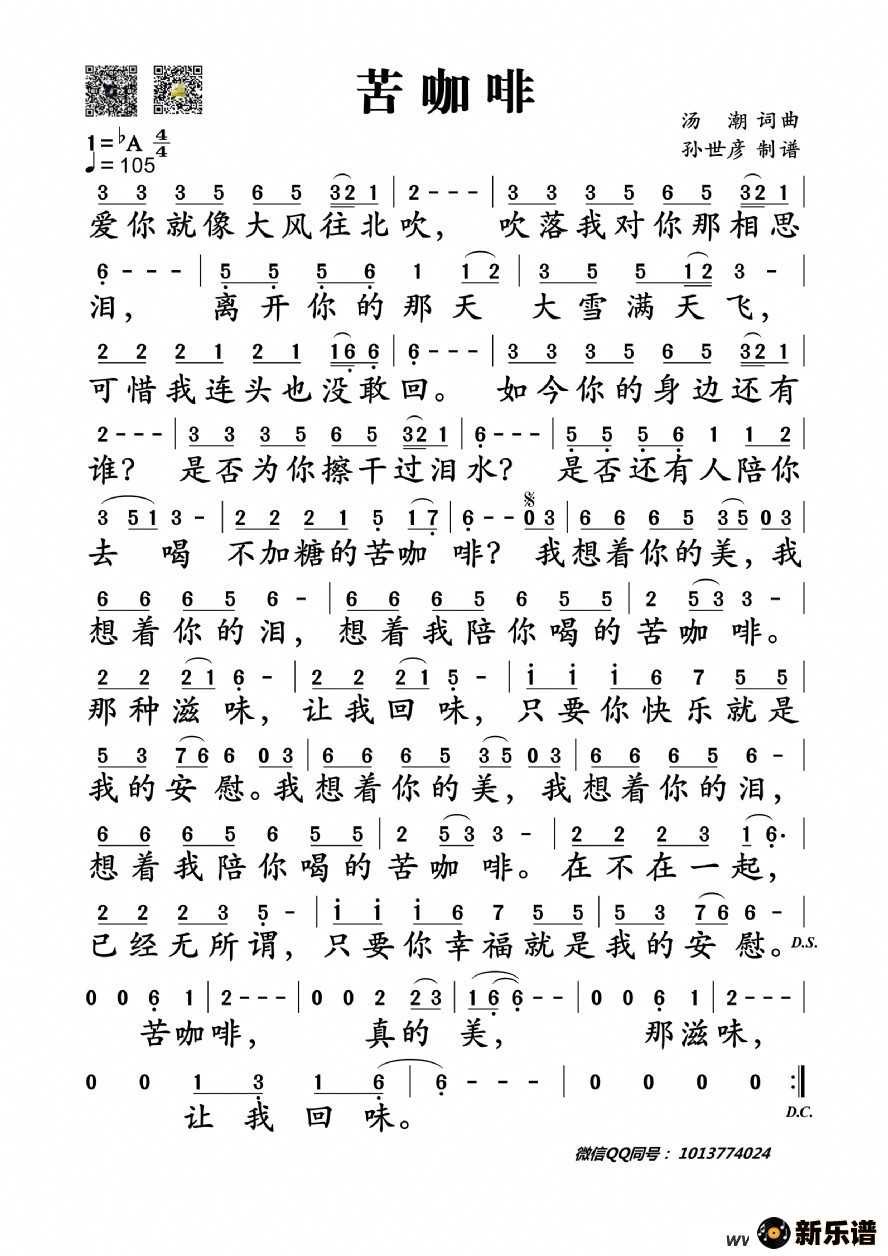 苦咖啡
汤 潮 词曲
1=♭A 4/4
孙世彦 制谱
♩=105
3 3 3 5 6 5 32 1 | 2 - - - | 3 3 3 5 6 5 32 1 |
爱你就像大风往北吹， 吹落我对你那相思
6 - - - | 5 5 5 6 1 12 | 3 5 5 12 3 - |
泪， 离开你的那天 大雪满天飞，
2 2 2 1 2 1 16 6 | 6 - - - | 3 3 3 5 6 5 32 1 |
可惜我连头也没敢回。 如今你的身边还有
2 - - - | 3 3 3 5 6 5 32 1 | 6 - - - | 5 5 5 6 1 1 2 |
谁？ 是否为你擦干过泪水？ 是否还有人陪你
3 51 3 - | 2 2 2 1 5 17 | 6 - - 0 3 | 6 6 6 5 35 0 3 |
去 喝 不加糖的苦咖 啡？ 我想着你的美，我
6 6 6 5 6 - | 6 6 6 5 6 5 5 | 2 53 3 - |
想着你的泪， 想着我陪你喝的苦咖 啡。
2 2 21 6 - | 2 2 21 5 - | i i i 6 7 5 5 |
那种滋味， 让我回味， 只要你快乐就是
5 3 76 6 0 3 | 6 6 6 5 35 0 3 | 6 6 6 5 6 - |
我的安慰。我想着你的美， 我想着你的泪，
6 6 6 5 6 5 5 | 2 53 3 - | 2 2 2 3 1 6· |
想着我陪你喝的苦咖 啡。在不在一起，
2 2 2 3 5 - | i i i 6 7 5 5 | 5 3 76 6 - |
已经无所谓， 只要你幸福就是我的安 慰。D.S.
0 0 6 1 | 2 - - - | 0 0 2 23 | 16 6 - - | 0 0 6 1 | 2 - - - |
苦咖啡， 真的 美， 那滋味，
0 0 1 3 1 6 | 6 - - - | 0 0 0 0 :||
让我回味。 D.C.
微信QQ同号： 1013774024
新乐谱